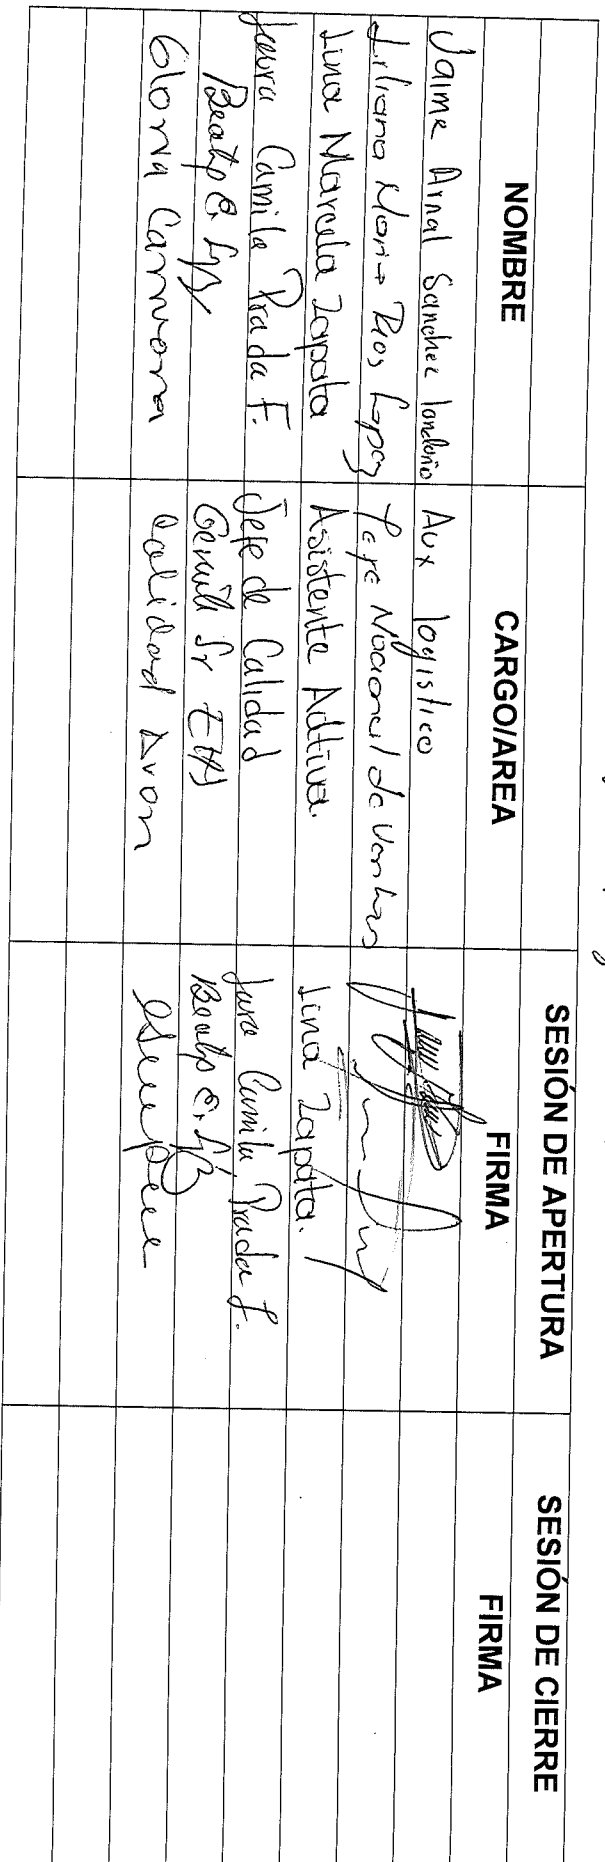 SESIÓN DE APERTURA SESIÓN DE CIERRE
NOMBRE CARGO/AREA FIRMA FIRMA
Jaime Arnal Sanchez londoño Aux logistico
Liliana Maria Rios Lopez Jefe Nacional de Ventas
Lina Marcela Zapata Asistente Adtiva. Lina Zapata.
Laura Camila Prada F. Jefe de Calidad Laura Camila Prada F.
Beatriz E. Sr Beatriz E.
Gloria Carmona calidad Avon